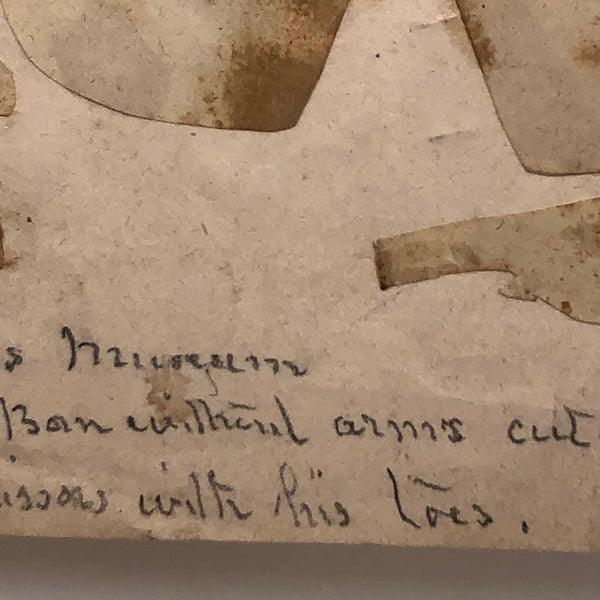 s Museum
Ban without arms cut
issors with his toes.